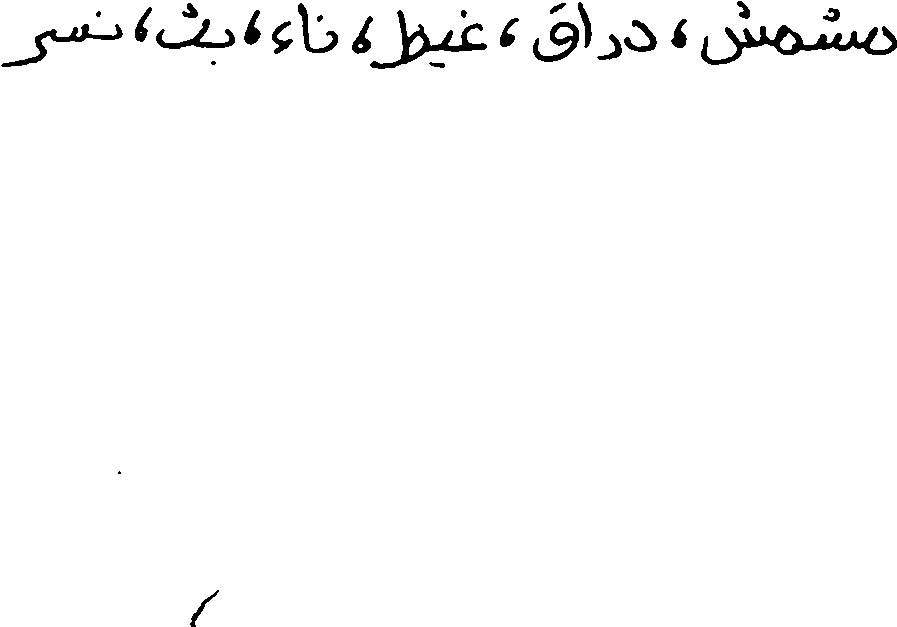 مشمش، دراق، غيط، ناء، بث، نسر